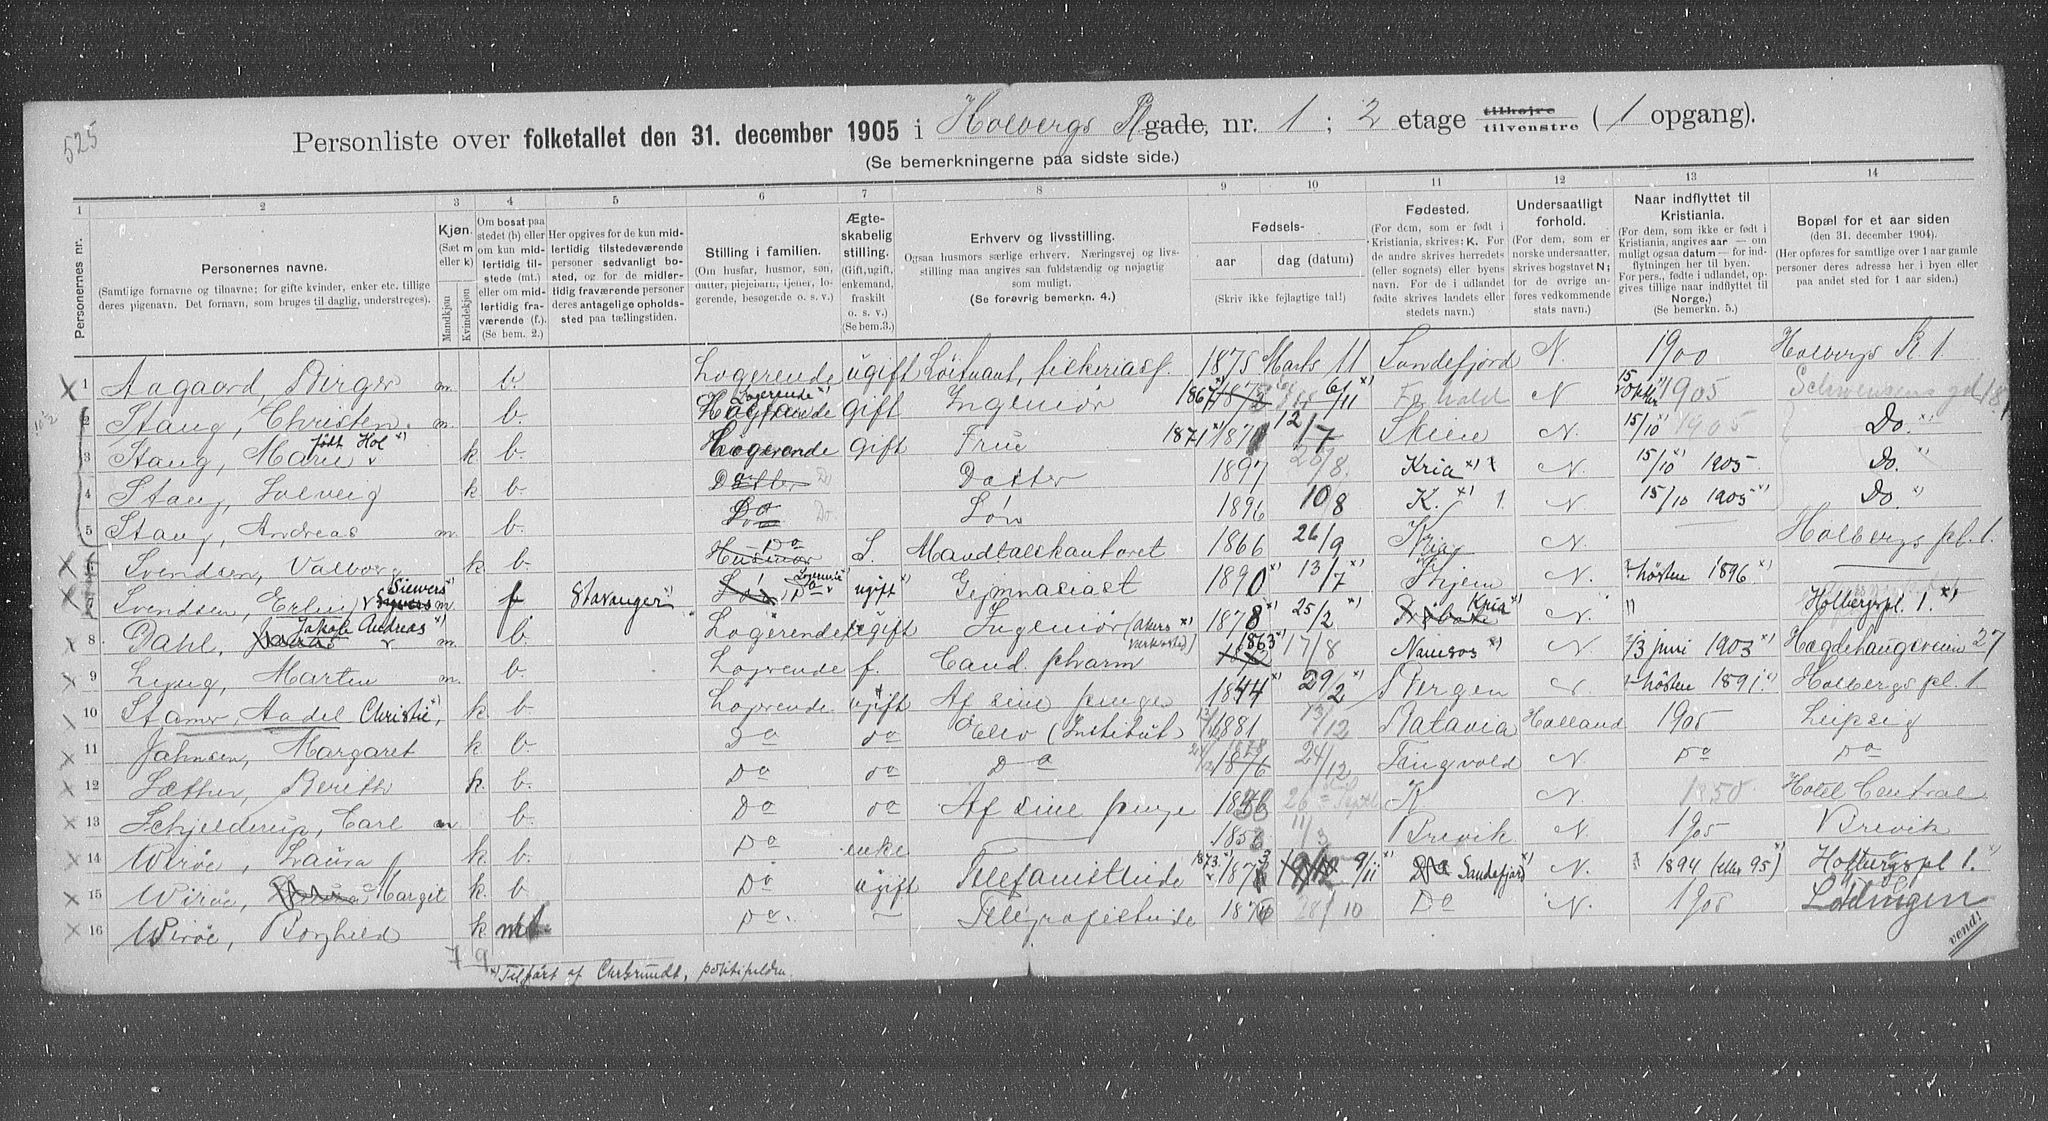 525
Personliste over folketallet den 31. december 1905 i Holbergs Pl gade, nr. 1 ; 2 etage tilhøjre tilvenstre ( 1 opgang).
(Se bemerkningerne paa sidste side.)
1 2 3 4 5 6 7 8 9 10 11 12 13 14
Personernes nr.
Personernes navne.
(Samtlige fornavne og tilnavne; for gifte kvinder, enker etc. tillige deres pigenavn. Det fornavn, som bruges til daglig, understreges).
Kjøn.
(Sæt m eller k)
Mandkjøn
Kvindekjøn
Om bosat paa stedet (b) eller om kun midlertidig tilstede (mt.) eller om midlertidig fraværende (f.). (Se bem. 2.)
Her opgives for de kun midlertidig tilstedeværende personer sedvanligt bosted, og for de midlertidig fraværende personer deres antagelige opholdssted paa tællingstiden.
Stilling i familien.
(Om husfar, husmor, søn, datter, plejebarn, tjener, logerende, besøgende o. s. v.)
Ægteskabelig stilling.
(Gift, ugift, enkemand, fraskilt o. s. v.) (Se bem. 3.)
Erhverv og livsstilling.
Ogsaa husmors særlige erhverv. Næringsvej og livsstilling maa angives saa fuldstændig og nøjagtig som muligt.
(Se forøvrig bemerkn. 4.)
Fødsels-
aar dag (datum)
(Skriv ikke fejlagtige tal!)
Fødested.
(For dem, som er født i Kristiania, skrives: K. For de andre skrives herredets (eller sognets) eller byens navn. For de i udlandet fødte skrives landets eller stedets navn.)
Undersaatligt forhold.
(For dem, som er norske undersaatter, skrives bogstavet N; for de øvrige anføres vedkommende stats navn.)
Naar indflyttet til Kristiania.
(For dem, som ikke er født i Kristiania, angives aar — om muligt ogsaa datum — for indflytningen her til byen. For pers., fødte i udlandet, opgives tillige naar indflyttet til Norge.)
(Se bemerkn. 5.)
Bopæl for et aar siden
(den 31. december 1904).
(Her opføres for samtlige over 1 aar gamle personer deres adresse her i byen eller paa andet sted for 1 aar siden.)
1 Aagaard, Birger m. b. Logerende ugift Løitnant, 1875 Marts 11 Sandefjord N. 1900 Holbergs Pl. 1.
2 Stang, Christen. m. b. Logerende gift Ingeniør 1867 6/11 N 15 Oktbr 1905 Schwensens gd 18
3 Stang, Marie født Hol k b. Logerende gift Frue 1871 12/7 Skien N. 15/10 1905 Do.
4 Stang, Solveig k b. Datter Do Datter 1897 20/8. Kria N. 15/10 1905 Do.
5 Stang, Andreas m. b. Do Do. Søn 1896 10 8 K. N 15/10 1905 Do
6 Svendsen, Valborg k b. Husmor Do S. Mandtalskontoret 1866 26/9 Kria N. Holbergs pl. 1.
7 Svendsen, Erling Sievers m f Stavanger Søn Do ugift Gymnasiast 1890 13/7 Skjem N. høsten 1896
8 Dahl, Jakob Andreas m. b. Logerende ugift Ingeniør (Akers 1878 25/2 Kria N. " Holbergspl. 1.
9 Martin m. b. Logerende f. Cand. pharm 1863 17/8 Namsos N 3 juni 1903 Hægdehaugsveien 27
10 Aadel Christie, k. b. Logerende ugift Af sine penge 1844 29/2 Bergen N. høsten 1891. Holbergs pl. 1
11 Jahnsen, Margaret k b Do do Elev (Institut 1881 13/12 Batavia Holland 1905 Leipzig
12 Sæther, Bereth k. b. Do do Do 1876 24/12 Tingvold N. Do Do
13 Schjelderup, Carl m b. Do do Af sine penge 26 K N. 1850 Hotel Central
14 Wirøe, Laura k b. Do enke 1853 11/3 Brevik N. 1905 Brevik
15 Wirøe, Margit k. b Do ugift Telefonistinde 1873 9/11 Sandefjord N. 1894 (eller 95) Holbergspl 1.
16 Wirøe, Borghild k mt. Do. — Telegrafistinde 28/10 Do N. 1905 Lødingen
7 9
x) Tilført af Chr Grundt, politifuldm.
vend!